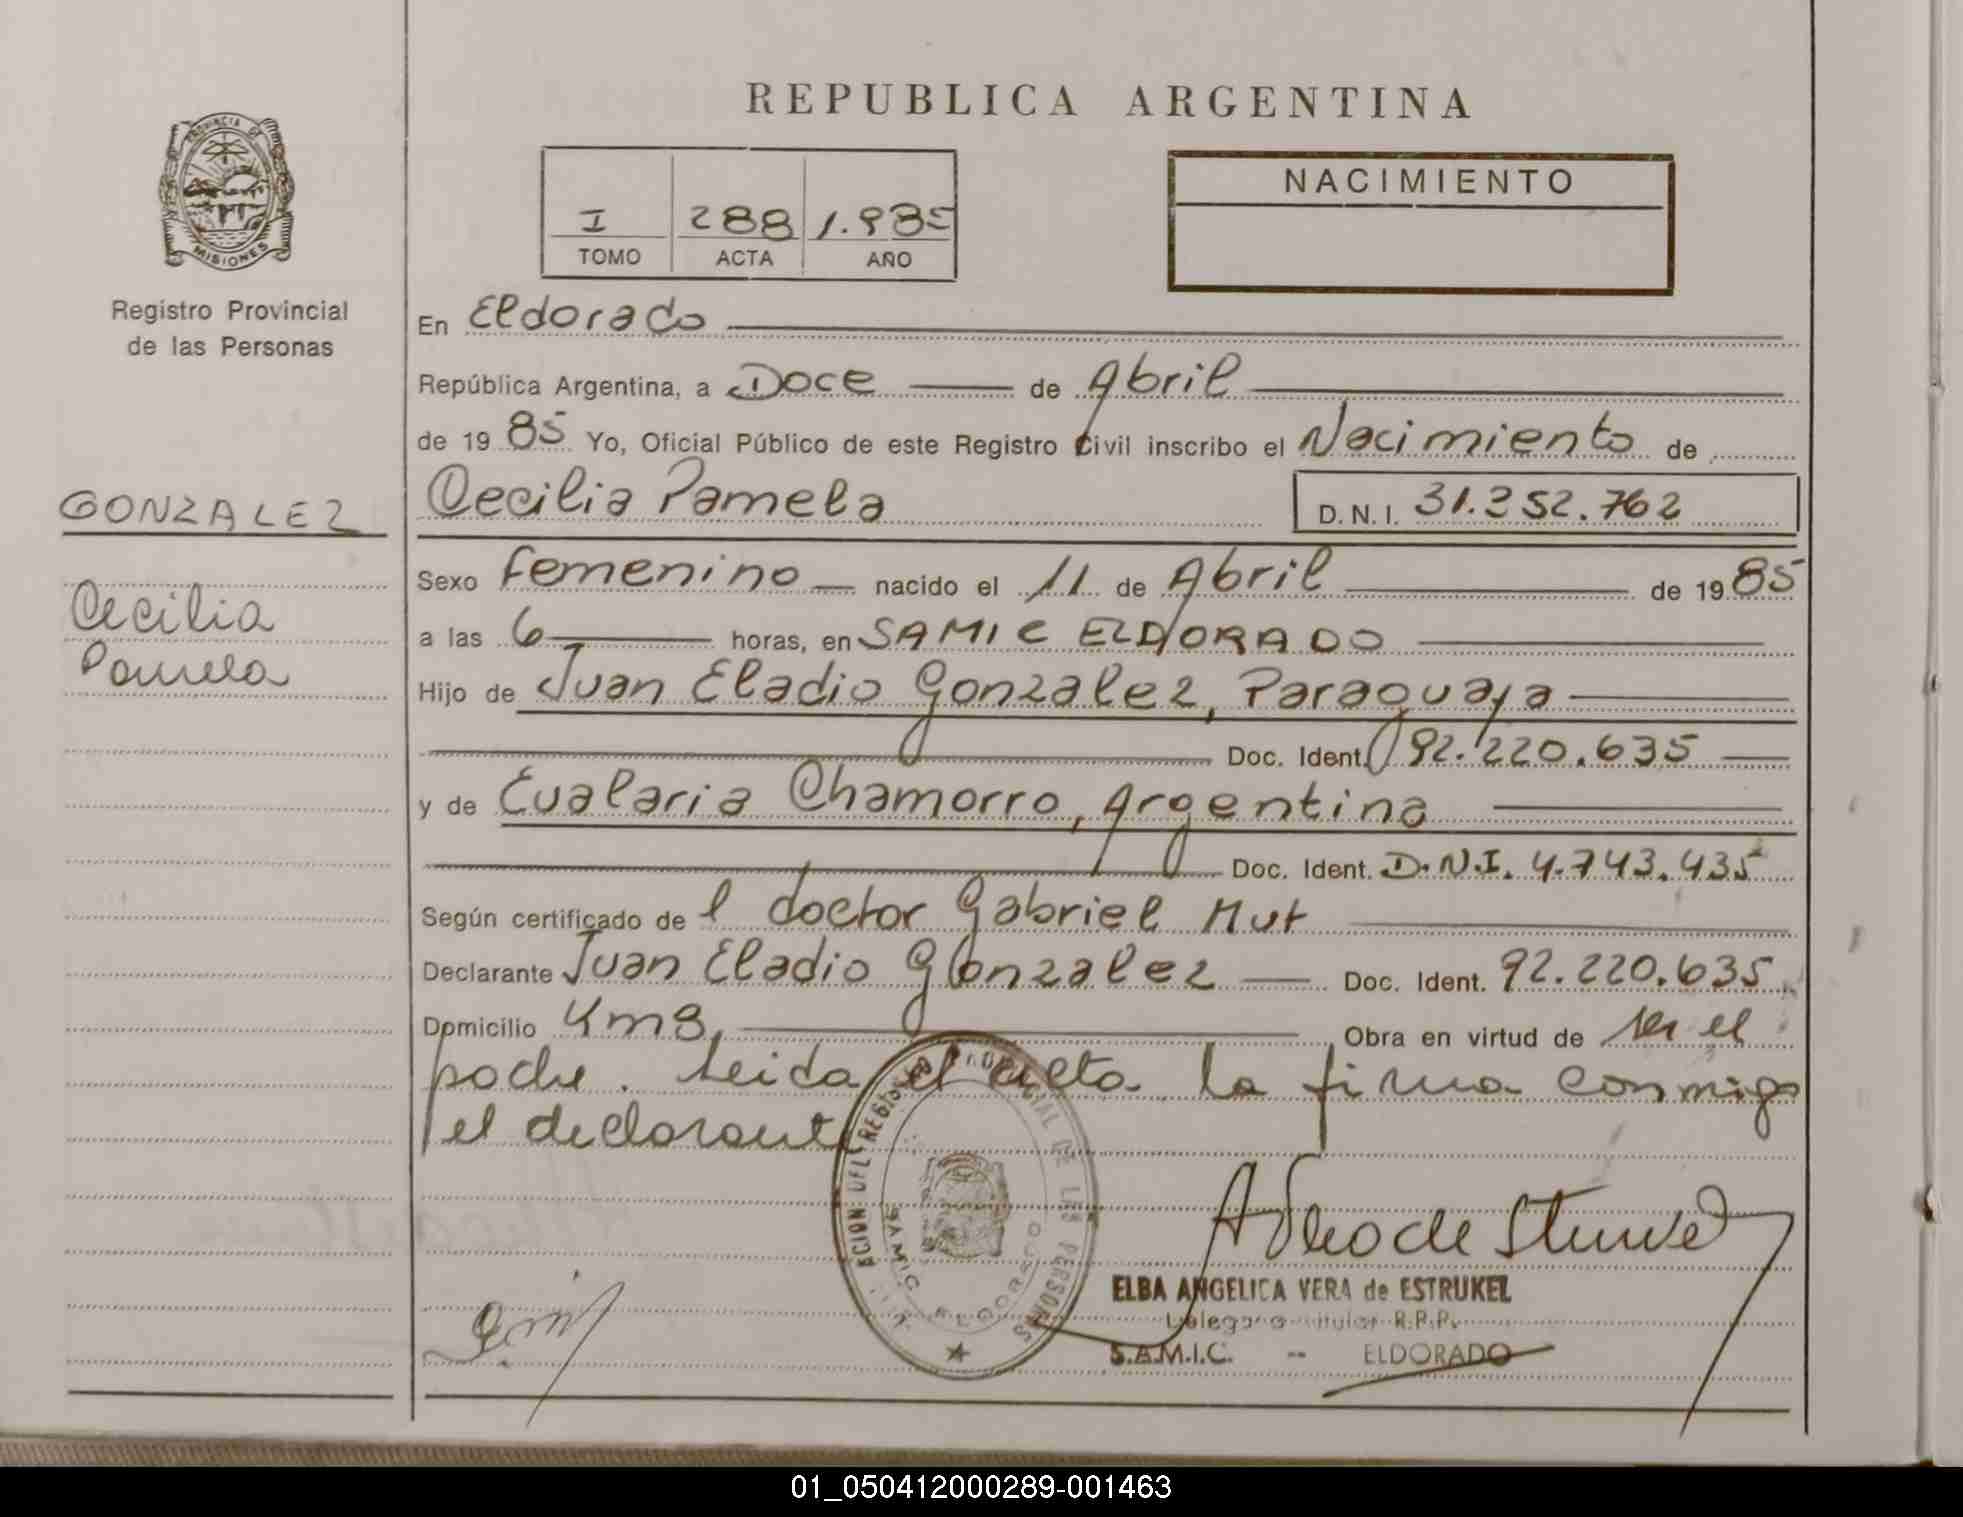 REPUBLICA ARGENTINA
PROVINCIA DE
MISIONES
Registro Provincial
de las Personas
I 288 1.985
TOMO ACTA AÑO
NACIMIENTO
En Eldorado
República Argentina, a Doce de Abril
de 19 85 Yo, Oficial Público de este Registro Civil inscribo el Nacimiento de
GONZALEZ
Cecilia Pamela D.N.I. 31.252.762
Cecilia
Pamela
Sexo femenino nacido el 11 de Abril de 19 85
a las 6 horas, en SAMIC ELDORADO
Hijo de Juan Eladio Gonzalez, Paraguaya
Doc. Ident. 92.220.635
y de Eualaria Chamorro, Argentina
Doc. Ident. D.N.I. 4.743.435
Según certificado de l doctor Gabriel Mut
Declarante Juan Eladio Gonzalez Doc. Ident. 92.220.635
Domicilio Km 8 Obra en virtud de ser el
padre. Leida el acta la firma conmigo
el declarante
SAMIC ELDORADO
ELBA ANGELICA VERA de ESTRUKEL
Delegada Titular R.P.P.
S.A.M.I.C. -- ELDORADO
01_050412000289-001463